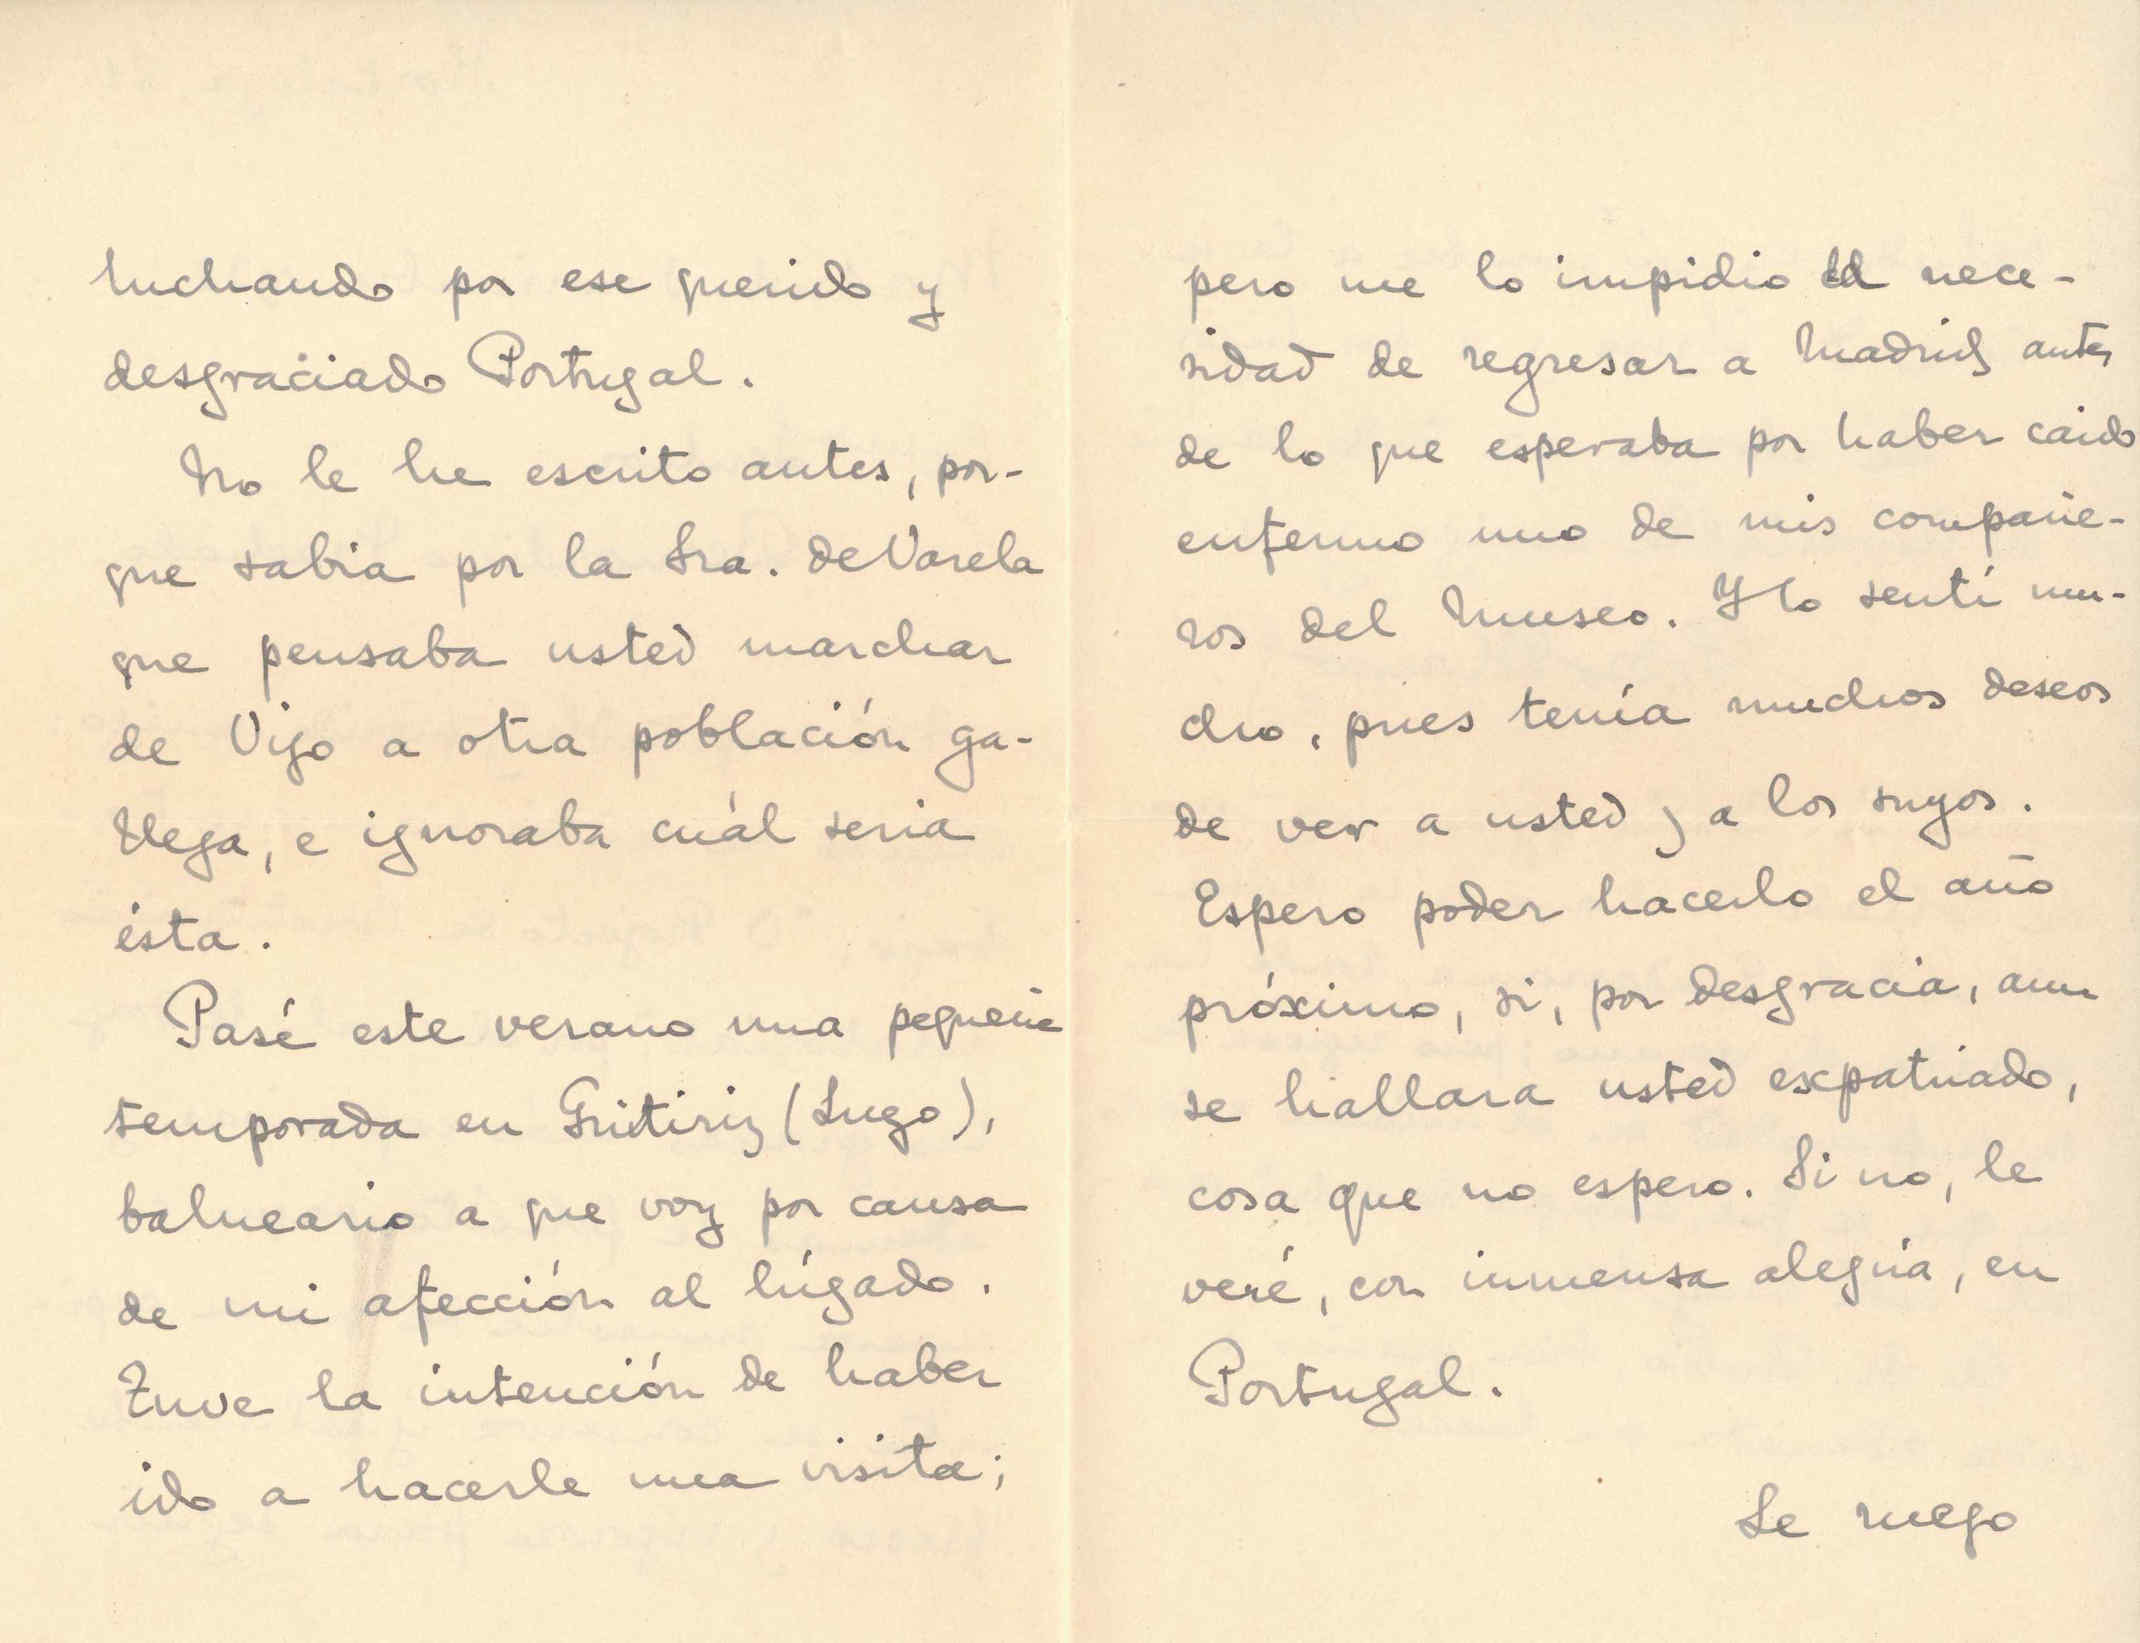 luchando por ese querido y
desgraciado Portugal.
No le he escrito antes, por-
que sabia por la Sra. de Varela
que pensaba usted marchar
de Vigo a otra población ga-
llega, e ignoraba cuál seria
ésta.
Pasé este verano una pequeña
temporada en Guitiriz (Lugo),
balneario a que voy por causa
de mi afección al hígado.
Tuve la intención de haber
ido a hacerle una visita;
pero me lo impidio nece-
sidad de regresar a Madrid antes
de lo que esperaba por haber caido
enfermo uno de mis compañe-
ros del Museo. Y lo sentí mu-
cho, pues tenía muchos deseos
de ver a usted y a los suyos.
Espero poder hacerlo el año
próximo, si, por desgracia, aun
se hallara usted expatriado,
cosa que no espero. Si no, le
veré, con inmensa alegría, en
Portugal.
Le ruego